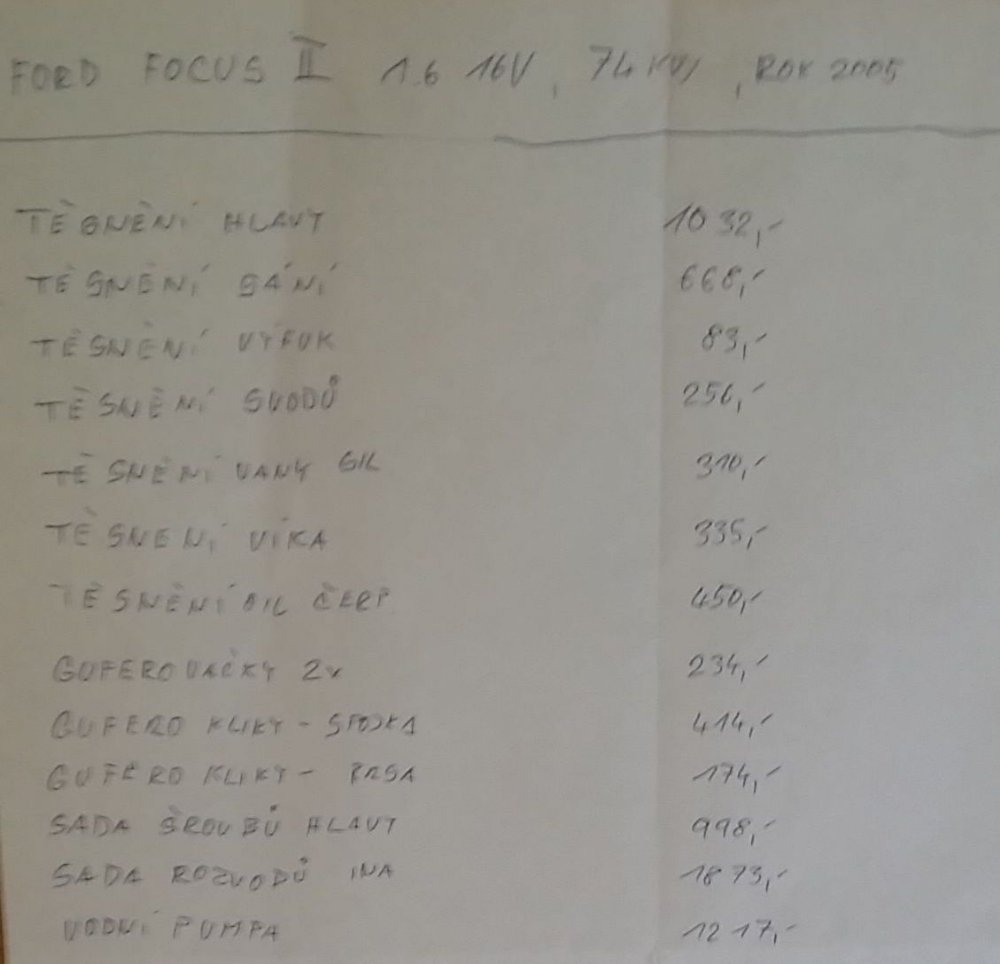 FORD FOCUS II 1.6 16V, 74 KW, ROK 2005
TĚSNĚNÍ HLAVY 1032,-
TĚSNĚNÍ SÁNÍ 668,-
TĚSNĚNÍ VÝFUK 83,-
TĚSNĚNÍ SVODŮ 256,-
TĚSNĚNÍ VANY OIL 310,-
TĚSNENÍ VÍKA 335,-
TĚSNĚNÍ OIL ČERP 450,-
GUFERO VAČKY 2x 234,-
GUFERO KLIKY - SPOJKA 414,-
GUFERO KLIKY - 174,-
SADA ŠROUBŮ HLAVY 998,-
SADA ROZVODŮ INA 1873,-
VODNÍ PUMPA 1217,-